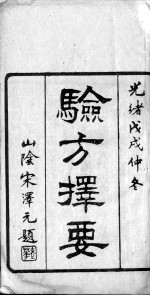 光緒戊戌仲冬
驗方擇要
山陰宋澤元題